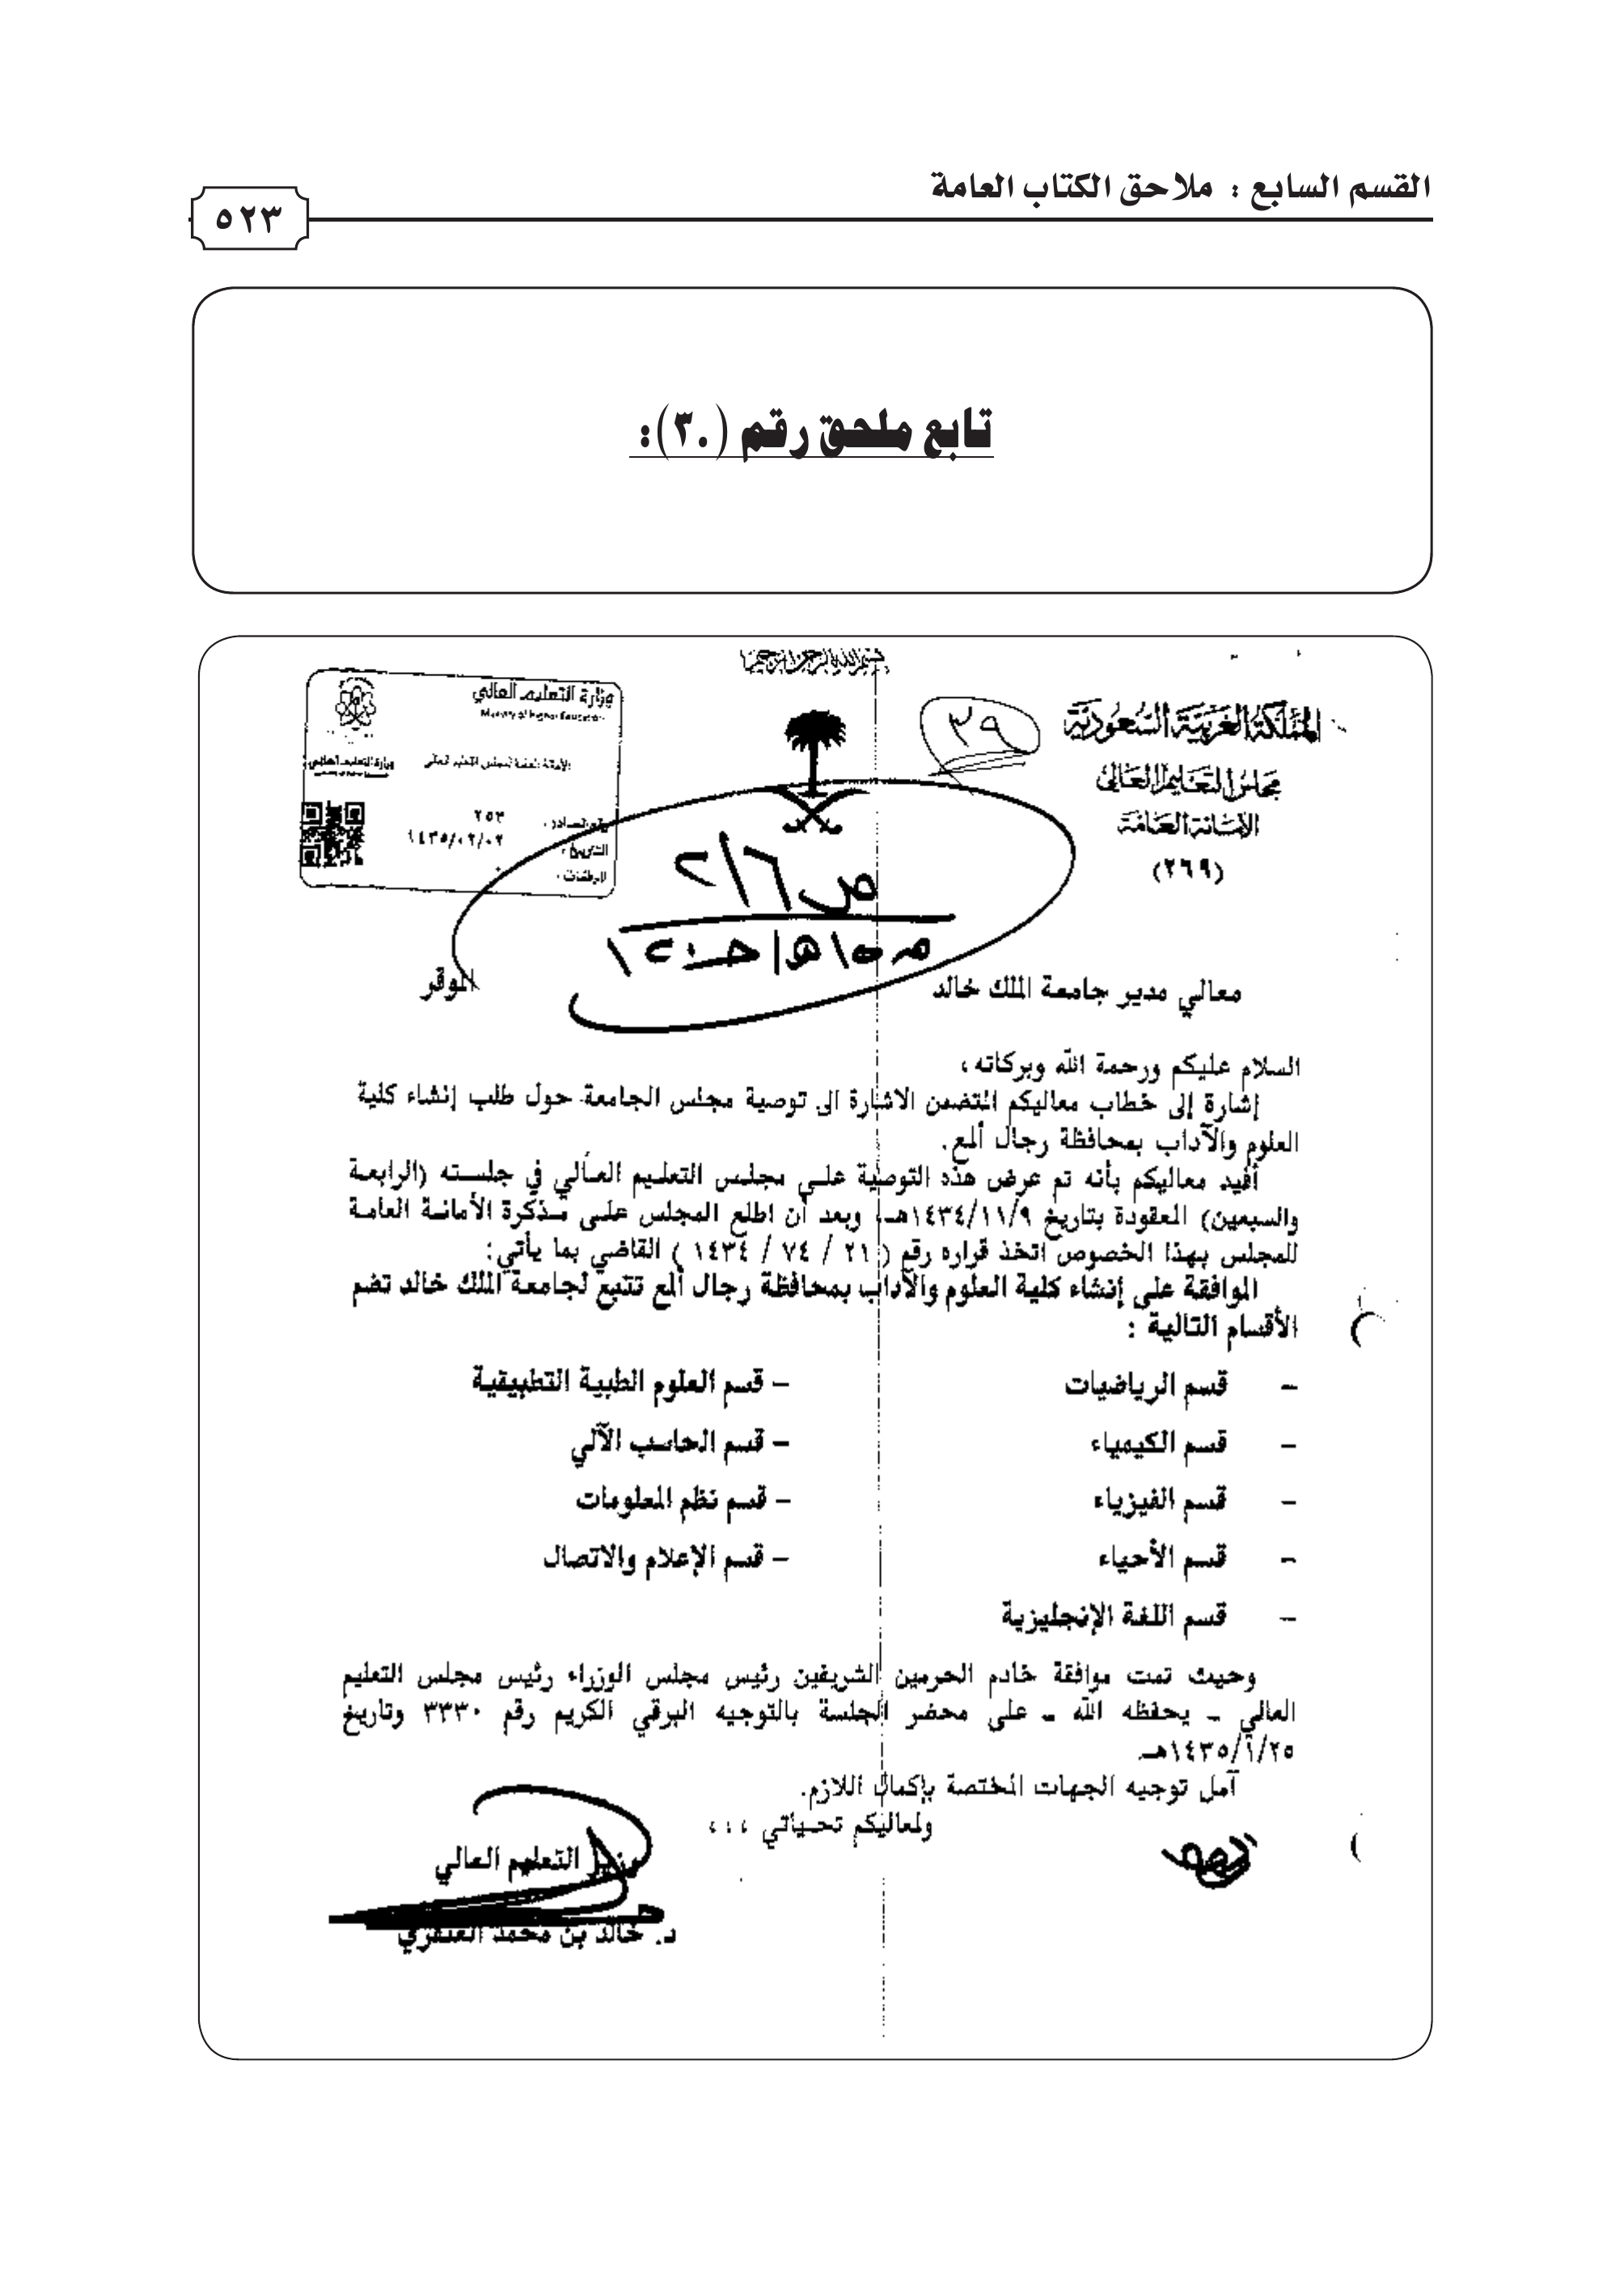 القسم السابع : ملاحق الكتاب العامة
٥٢٣
تابع ملحق رقم (٣٠):
بسم الله الرحمن الرحيم
المملكة العربية السعودية
مجلس التعليم العالي
الأمانة العامة
(٢٦٩)
٢٩
وزارة التعليم العالي
Ministry of Higher Education
وزارة التعليم العالي
الأمانة العامة لمجلس التعليم العالي
رقم الصادر : ٢٥٣
التاريخ : ١٤٣٥/٠٢/٠٢
المرفقات :
معالي مدير جامعة الملك خالد الموقر
السلام عليكم ورحمة الله وبركاته ،
إشارة إلى خطاب معاليكم المتضمن الاشارة الى توصية مجلس الجامعة حول طلب إنشاء كلية
العلوم والآداب بمحافظة رجال ألمع.
أفيد معاليكم بأنه تم عرض هذه التوصية على مجلس التعليم العالي في جلسته (الرابعة
والسبعين) المعقودة بتاريخ ١٤٣٤/١١/٩هـ، وبعد أن اطلع المجلس على مذكرة الأمانة العامة
للمجلس بهذا الخصوص اتخذ قراره رقم ( ٢١ / ٧٤ / ١٤٣٤ ) القاضي بما يأتي:
الموافقة على إنشاء كلية العلوم والآداب بمحافظة رجال ألمع تتبع لجامعة الملك خالد تضم
الأقسام التالية :
- قسم الرياضيات - قسم العلوم الطبية التطبيقية
- قسم الكيمياء - قسم الحاسب الآلي
- قسم الفيزياء - قسم نظم المعلومات
- قسم الأحياء - قسم الإعلام والاتصال
- قسم اللغة الإنجليزية
وحيث تمت موافقة خادم الحرمين الشريفين رئيس مجلس الوزراء رئيس مجلس التعليم
العالي - يحفظه الله - على محضر الجلسة بالتوجيه البرقي الكريم رقم ٣٣٣٠ وتاريخ
١٤٣٥/١/٢٥هـ
آمل توجيه الجهات المختصة بإكمال اللازم.
ولمعاليكم تحياتي ،،،
وزير التعليم العالي
د. خالد بن محمد العنقري